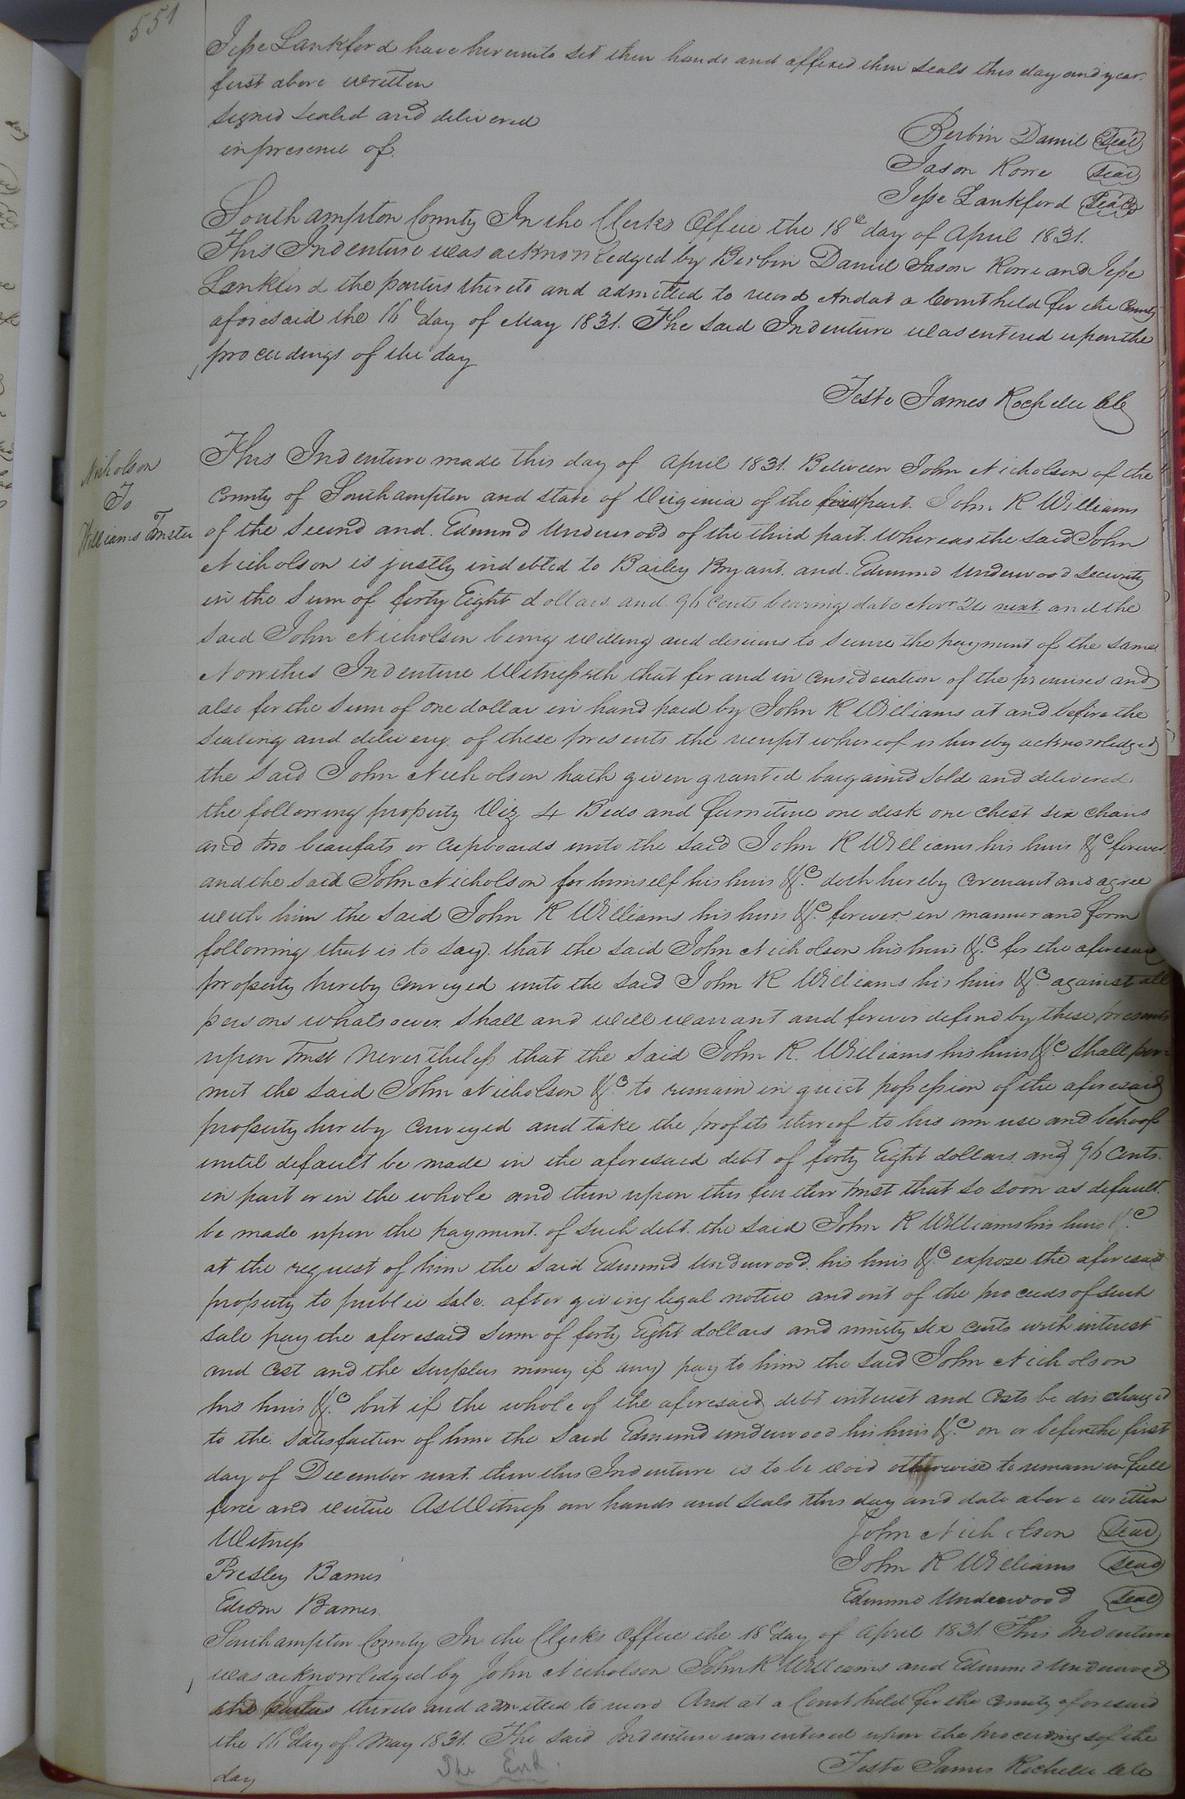 551
Jesse Lankford have hereunto set their hands and affixed their seals this day and year
first above written
signed sealed and delivered
in presence of
Berbin Daniel Seal
Jason Rowe Seal
Jesse Lankford Seal
Southampton County In the Clerks Office the 18th day of April 1831.
This Indenture was acknowledged by Berbin Daniel Jason Rowe and Jesse
Lankford the parties thereto and admitted to record And at a Court held for the County
aforesaid the 16th day of May 1831. The said Indenture was entered upon the
proceedings of the day
Teste James Rochelle Clk
Nicholson
To
Williams Trustee
This Indenture made this day of April 1831. Between John Nicholson of the
County of Southampton and state of Virginia of the first part. John R Williams
of the second and Edmund Underwood of the third part. Whereas the said John
Nicholson is justly indebted to Bailey Bryant and Edmund Underwood security
in the sum of forty Eight dollars and 96 cents bearing date Novr next. and the
said John Nicholson being willing and desirous to secure the payment of the same
Now this Indenture Witnesseth that for and in consideration of the premises and
also for the sum of one dollar in hand paid by John R Williams at and before the
sealing and delivery of these presents the receipt whereof is hereby acknowledged
the said John Nicholson hath given granted bargained sold and delivered
the following property Viz 4 Beds and furniture one desk one chest six chairs
and two beaufats or cupboards unto the said John R Williams his heirs &C forever
and the said John Nicholson for himself his heirs &C. doth hereby covenant and agree
with him the said John R Williams his heirs &C. forever in manner and form
following that is to say. that the said John Nicholson his heirs &C for the aforesaid
property hereby conveyed unto the said John R Williams his heirs &C against all
persons whatsoever shall and will warrant and forever defend by these presents
upon Trust Nevertheless that the said John R. Williams his heirs &C shall per-
mit the said John Nicholson &C to remain in quiet possession of the aforesaid
property hereby conveyed and take the profits thereof to his own use and behoof
until default be made in the aforesaid debt of forty Eight dollars and 96 cents.
in part or in the whole and then upon this further trust that so soon as default
be made upon the payment of such debt the said John R Williams his heirs &C
at the request of him the said Edmund Underwood his heirs &C expose the aforesaid
property to public sale. after giving legal notice and out of the proceeds of such
sale pay the aforesaid sum of forty Eight dollars and ninety six cents with interest
and cost and the surplus money if any pay to him the said John Nicholson
his heirs &C but if the whole of the aforesaid debt interest and costs be discharged
to the satisfaction of him the said Edmund Underwood his heirs &C on or before the first
day of December next. then this Indenture is to be void otherwise to remain in full
force and virtue As Witness our hands and seals this day and date above written
Witness
Presley Barnes
Barnes
John Nicholson Seal
John R Williams Seal
Edmund Underwood Seal
Southampton County In the Clerks Office the 18th day of April 1831 This Indenture
was acknowledged by John Nicholson John R Williams and Edmund Underwood
the parties thereto and admitted to record And at a Court held for the County aforesaid
the 16th day of May 1831. The said Indenture was entered upon the proceedings of the
day
Teste James Rochelle Clk
The End.